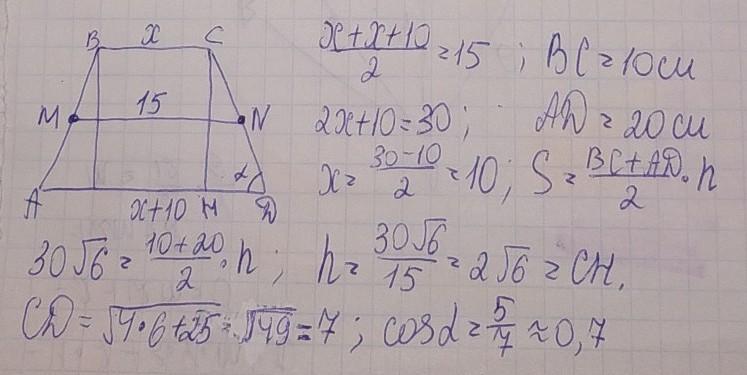 B x C
M 15 N
A x+10 H D
α
(x+x+10)/2 = 15 ; BC = 10 см
2x+10=30 ; AD = 20 см
x = (30-10)/2 = 10 ; S = (BC+AD)/2 · h
30√6 = (10+20)/2 · h ; h = 30√6/15 = 2√6 = CH.
CD = √(4·6+25) = √49 = 7 ; cosα = 5/7 ≈ 0,7